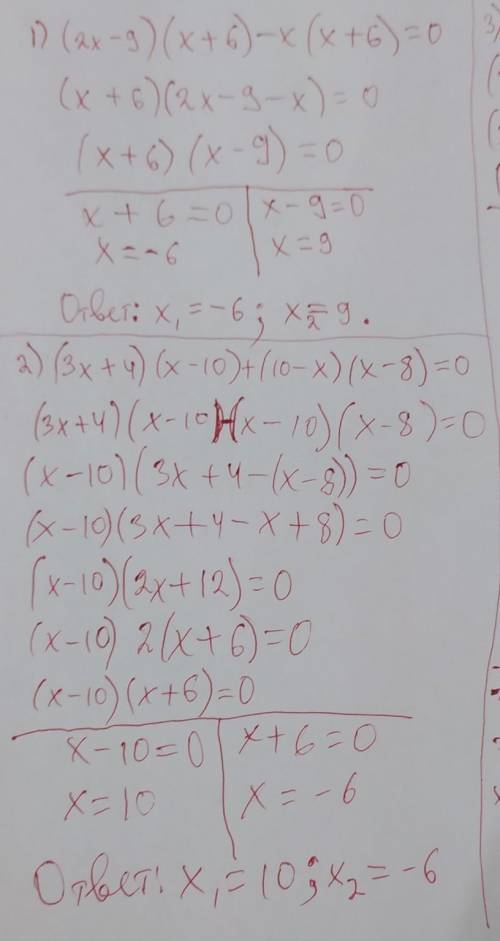 1) (2x-9)(x+6)-x(x+6)=0
(x+6)(2x-9-x)=0
(x+6)(x-9)=0
x+6=0 x-9=0
x=-6 x=9
Ответ: x₁=-6; x₂=9.
2) (3x+4)(x-10)+(10-x)(x-8)=0
(3x+4)(x-10)-(x-10)(x-8)=0
(x-10)(3x+4-(x-8))=0
(x-10)(3x+4-x+8)=0
(x-10)(2x+12)=0
(x-10) 2(x+6)=0
(x-10)(x+6)=0
x-10=0 x+6=0
x=10 x=-6
Ответ: x₁=10; x₂=-6
3)